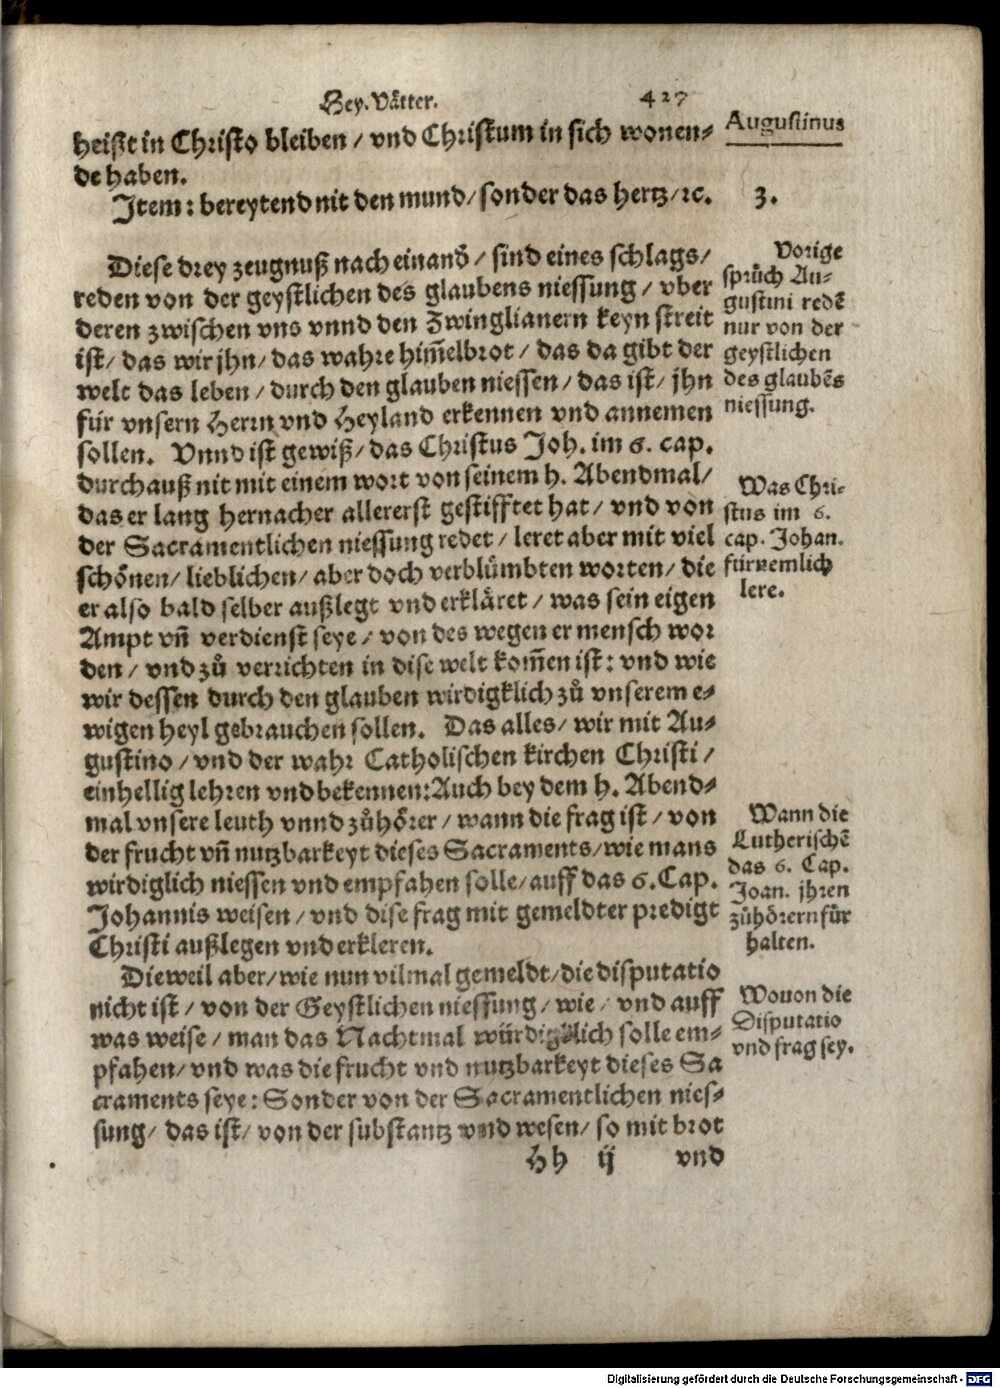 Hey. Vätter. 427
heißt in Christo bleiben / vnd Christum in sich wonen⸗
de haben.
Augustinus
Item: bereytend nit den mund / sonder das hertz / ꝛc.
3.
Diese drey zeugnuß nach einand̄ / sind eines schlags /
reden von der geystlichen des glaubens niessung / vber
deren zwischen vns vnnd den Zwinglianern keyn streit
ist / das wir jhn / das wahre him̄elbrot / das da gibt der
welt das leben / durch den glauben niessen / das ist / jhn
für vnsern Herrn vnd Heyland erkennen vnd annemen
sollen. Vnnd ist gewiß / das Christus Joh. im 6. cap.
durchauß nit mit einem wort von seinem h. Abendmal /
das er lang hernacher allererst gestifftet hat / vnd von
der Sacramentlichen niessung redet / leret aber mit viel
schönen / lieblichen / aber doch verblümbten worten / die
er also bald selber außlegt vnd erkläret / was sein eigen
Ampt vn̄ verdienst seye / von des wegen er mensch wor
den / vnd zů verrichten in dise welt kom̄en ist: vnd wie
wir dessen durch den glauben wirdigklich zů vnserem e⸗
wigen heyl gebrauchen sollen. Das alles / wir mit Au⸗
gustino / vnd der wahr Catholischen kirchen Christi /
einhellig lehren vnd bekennen: Auch bey dem h. Abend⸗
mal vnsere leuth vnnd zůhörer / wann die frag ist / von
der frucht vn̄ nutzbarkeyt dieses Sacraments / wie mans
wirdiglich niessen vnd empfahen solle / auff das 6. Cap.
Johannis weisen / vnd dise frag mit gemeldter predigt
Christi außlegen vnd erkleren.
Dieweil aber / wie nun vilmal gemeldt / die disputatio
nicht ist / von der Geystlichen niessung / wie / vnd auff
was weise / man das Nachtmal würdigklich solle em⸗
pfahen / vnd was die frucht vnd nutzbarkeyt dieses Sa
craments seye: Sonder von der Sacramentlichen nies⸗
sung / das ist / von der substantz vnd wesen / so mit brot
Hh ij vnd
Vorige
sprüch Au⸗
gustini redē
nur von der
geystlichen
des glaubēs
niessung.
Was Chri⸗
stus im 6.
cap. Johan.
fürnemlich
lere.
Wann die
Lutherischē
das 6. Cap.
Joan. jhren
zůhörern für
halten.
Wouon die
Disputatio
vnd frag sey.
Digitalisierung gefördert durch die Deutsche Forschungsgemeinschaft - DFG